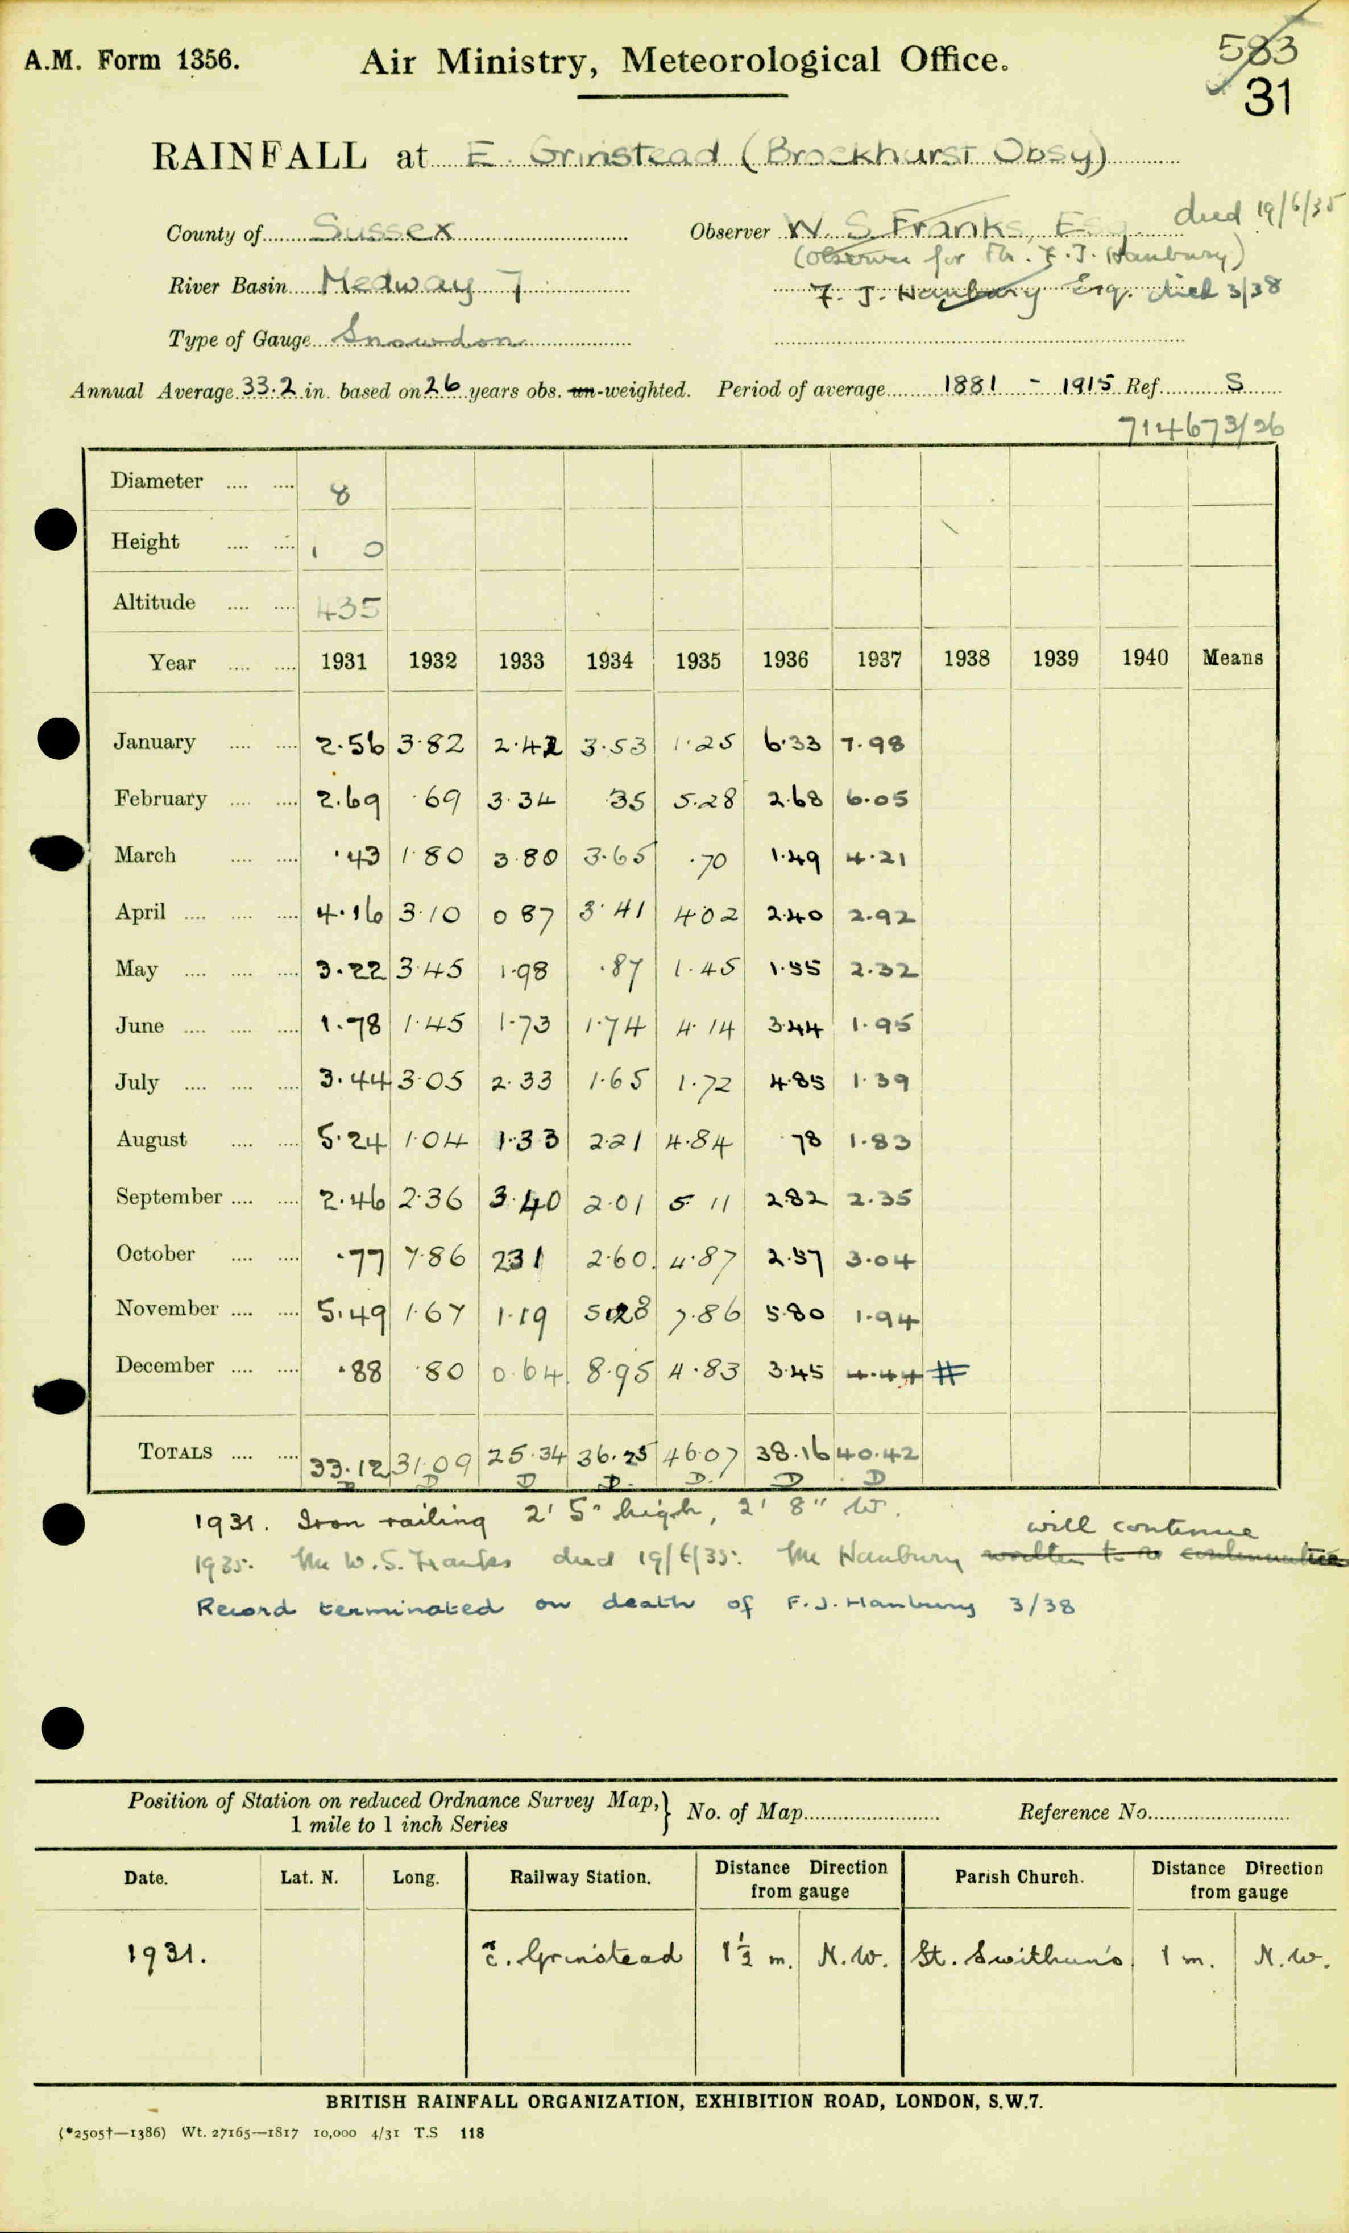 A.M. Form 1356.
Air Ministry, Meteorological Office.
583
31
RAINFALL at E. Grinstead (Brockhurst Obsy)
County of Sussex
Observer W. S. Franks, Esq. died 19/6/35
(Observer for Mr. F. J. Hanbury)
River Basin Medway 7
F. J. Hanbury Esq. died 3/38
Type of Gauge Snowdon
Annual Average 33.2 in. based on 26 years obs. un-weighted. Period of average 1881 - 1915 Ref. S
714673/26
Diameter .... .... 8
Height .... .... 1 0
Altitude .... .... 435
Year .... .... 1931 1932 1933 1934 1935 1936 1937 1938 1939 1940 Means
January .... .... 2.56 3.82 2.42 3.53 1.25 6.33 7.98
February .... .... 2.69 .69 3.34 .35 5.28 2.68 6.05
March .... .... .43 1.80 3.80 3.65 .70 1.49 4.21
April .... .... .... 4.16 3.10 0 87 3.41 4.02 2.40 2.92
May .... .... .... 3.22 3.45 1.98 .87 1.45 1.55 2.32
June .... .... .... 1.78 1.45 1.73 1.74 4.14 3.44 1.95
July .... .... .... 3.44 3.05 2.33 1.65 1.72 4.85 1.39
August .... .... 5.24 1.04 1.33 2.21 4.84 .78 1.83
September .... .... 2.46 2.36 3.40 2.01 5 11 2.82 2.35
October .... .... .77 7.86 2 31 2.60 4.87 2.57 3.04
November .... .... 5.49 1.67 1.19 5.28 7.86 5.80 1.94
December .... .... .88 .80 0.64 8.95 4.83 3.45 4.44 #
TOTALS .... .... 33.12 31.09 25.34 36.25 46.07 38.16 40.42
D D D D D D D
1931. Iron railing 2' 5" high, 2' 8" W.
will continue
1935. Mr W. S. Franks died 19/6/35. Mr Hanbury written to re continuation
Record terminated on death of F. J. Hanbury 3/38
Position of Station on reduced Ordnance Survey Map, 1 mile to 1 inch Series } No. of Map Reference No.
Date. Lat. N. Long. Railway Station. Distance Direction from gauge Parish Church. Distance Direction from gauge
1931. E. Grinstead 1½ m. N.W. St. Swithun's 1 m. N.W.
BRITISH RAINFALL ORGANIZATION, EXHIBITION ROAD, LONDON, S.W.7.
(*2505†—1386) Wt. 27165—1817 10,000 4/31 T.S 118